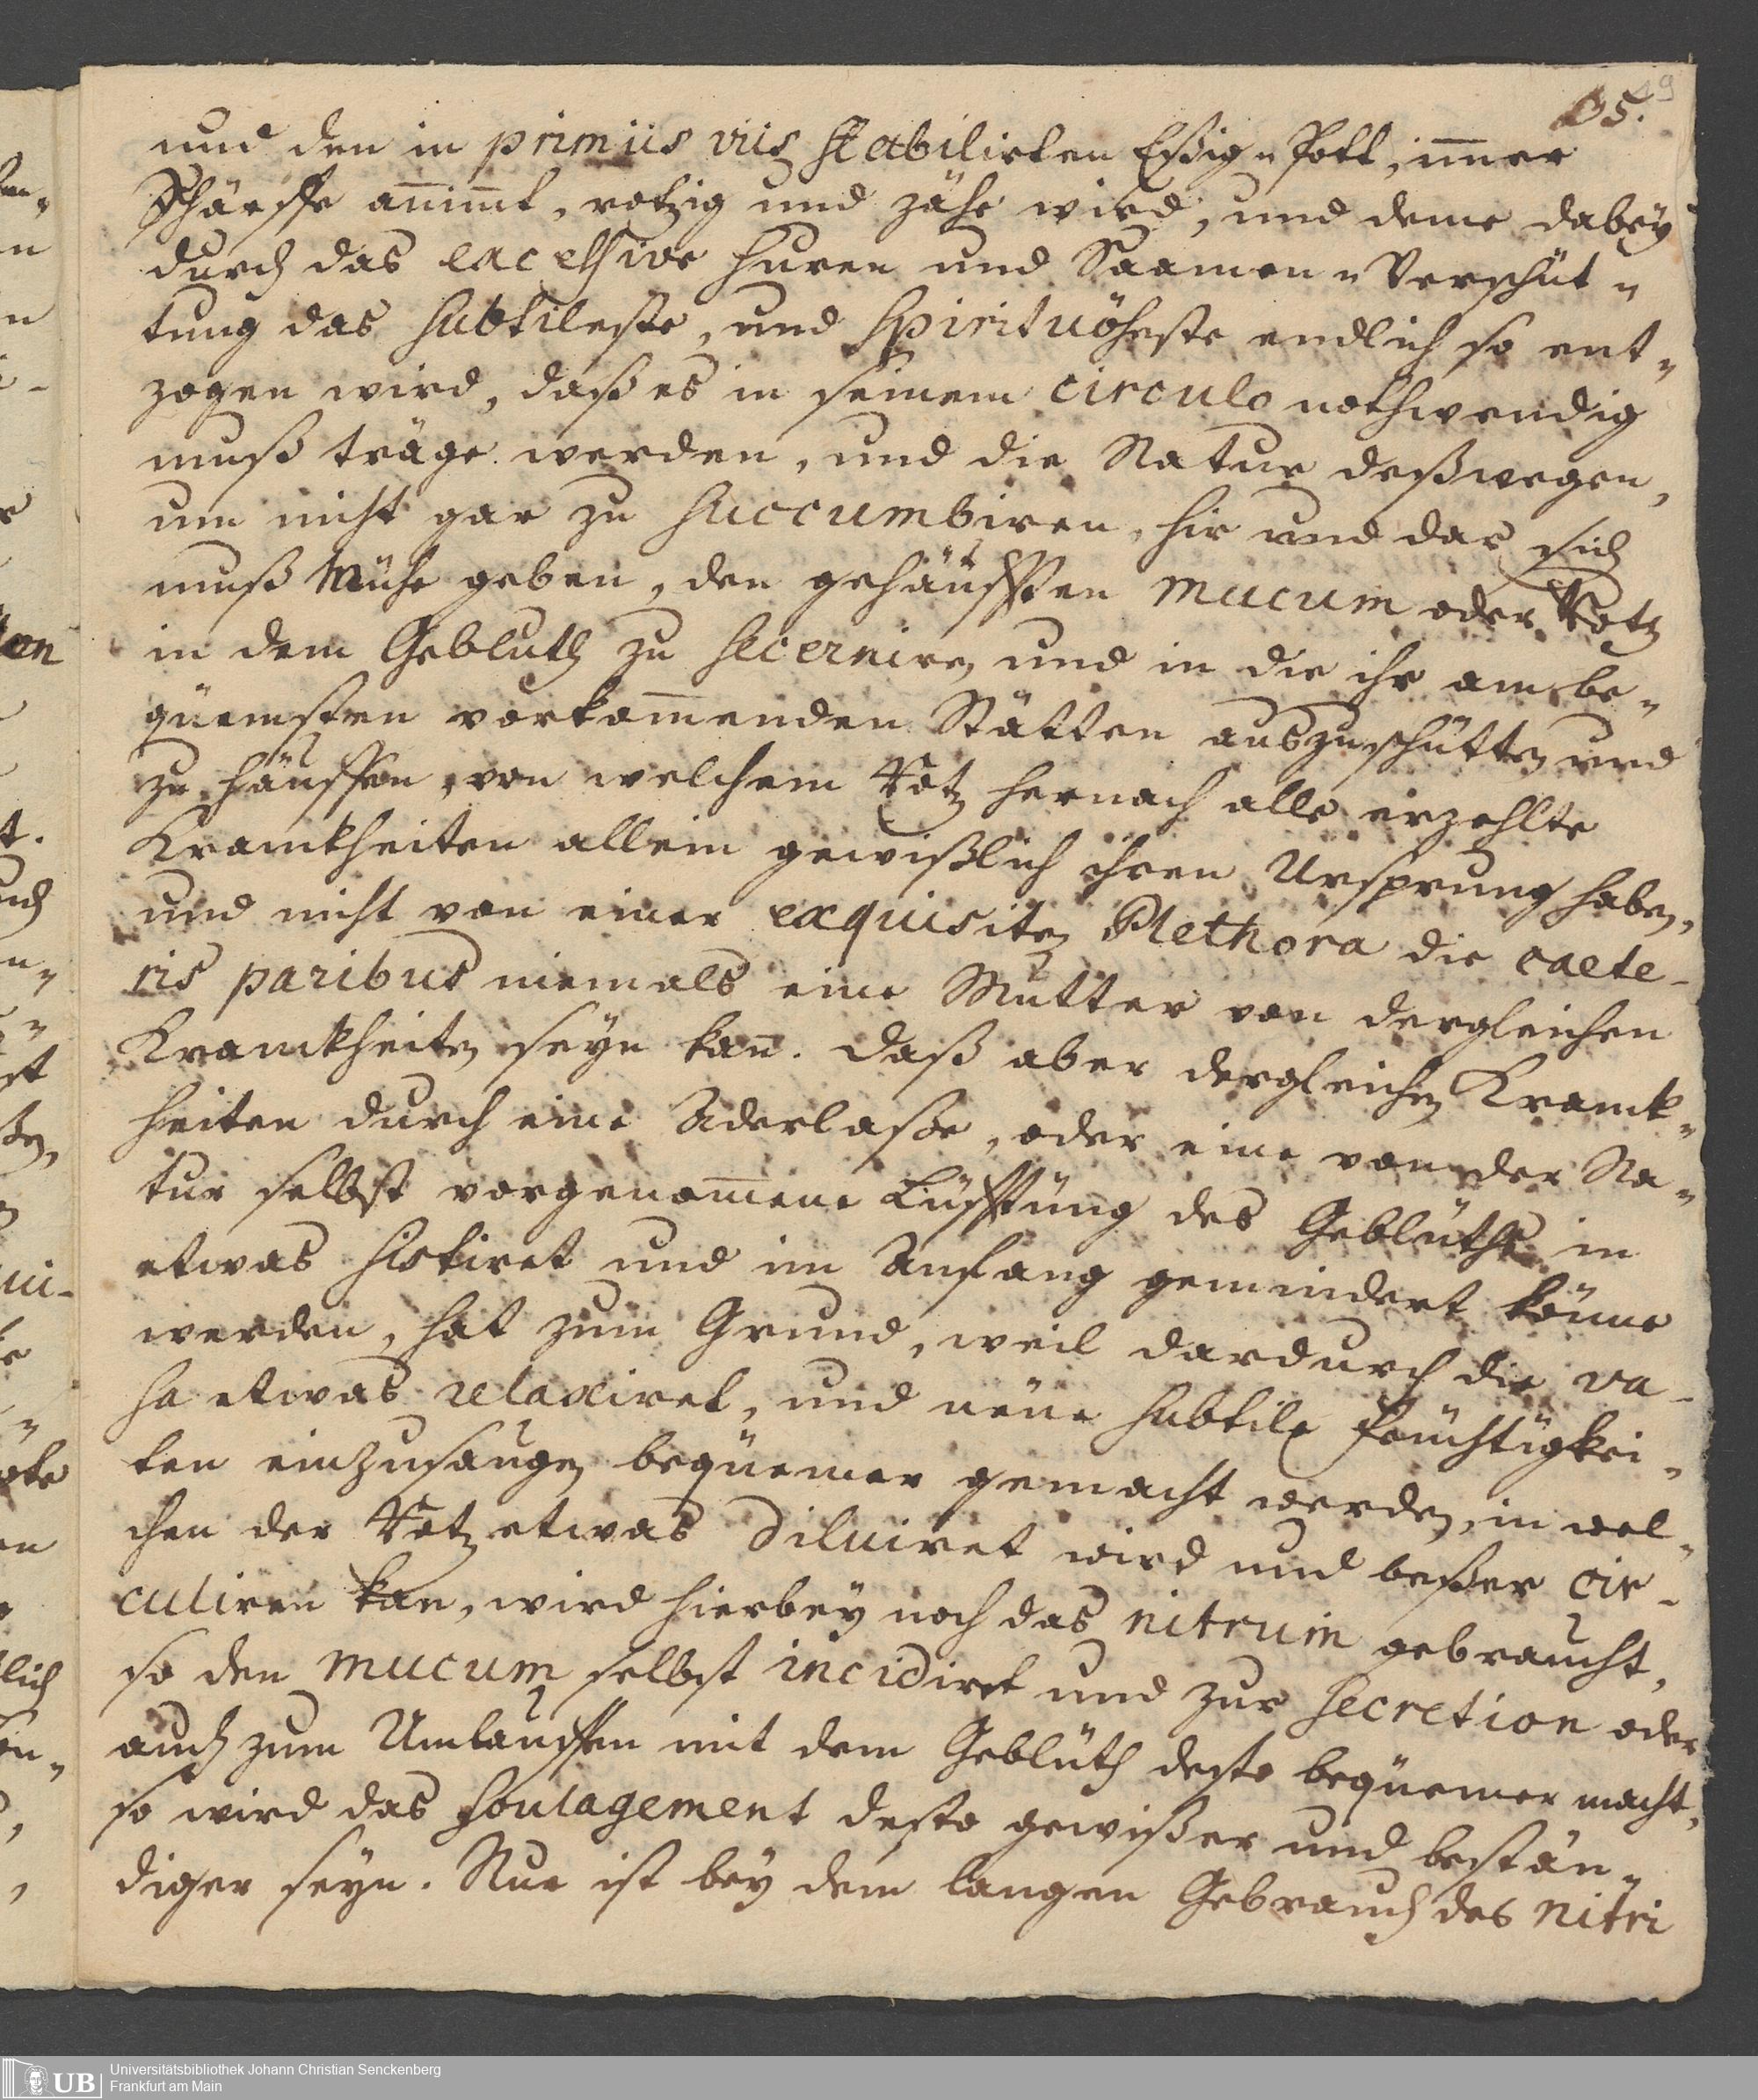 49
05.
und den in primiis viis stabilirten Eßig-Pott, immer
Schärffe annimmt, rotzig und zähe wird, und deme dabey
durch das excessive Huren und Saamen-Verschüt-
tung das subtileste, und spirituöseste endlich so ent-
zogen wird, daß es in seinem circulo nothwendig
muß träge werden, und die Natur deßwegen,
um nicht gar zu succumbiren, hir und dar sich
muß Mühe geben, den gehäufften mucum oder Rotz
in dem Gebluth zu secerniren und in die ihr am be-
quemsten vorkommenden Stätten auszuschütten und
zu häuffen, von welchem Rotz hernach alle erzehlte
Kranckheiten allein gewißlich ihren Ursprung haben,
und nicht von einer exquisiten Plethora die caete-
ris paribus niemals eine Mutter von dergleichen
Kranckheiten seyn kann. Daß aber dergleichen Kranck-
heiten durch eine Aderlaße, oder eine von der Na-
tur selbst vorgenommene Lüfftung des Geblüths in
etwas sistiret und im Anfang gemindert könne
werden, hat zum Grund, weil dardurch die va-
sa etwas relaxiret, und neue subtile Feuchtigkei-
ten einzusaugen bequemer gemacht werden, in wel-
chen der Rotz etwas diluiret wird und beßer cir-
culiren kan, wird hierbey noch das nitrum gebraucht,
so den mucum selbst incidiret und zur secretion oder
auch zum Umlauffen mit dem Geblüth desto bequemer macht,
so wird das soulagement desto gewißer und bestän-
diger seyn. Nur ist bey dem langen Gebrauch des nitri
UB
Universitätsbibliothek Johann Christian Senckenberg
Frankfurt am Main